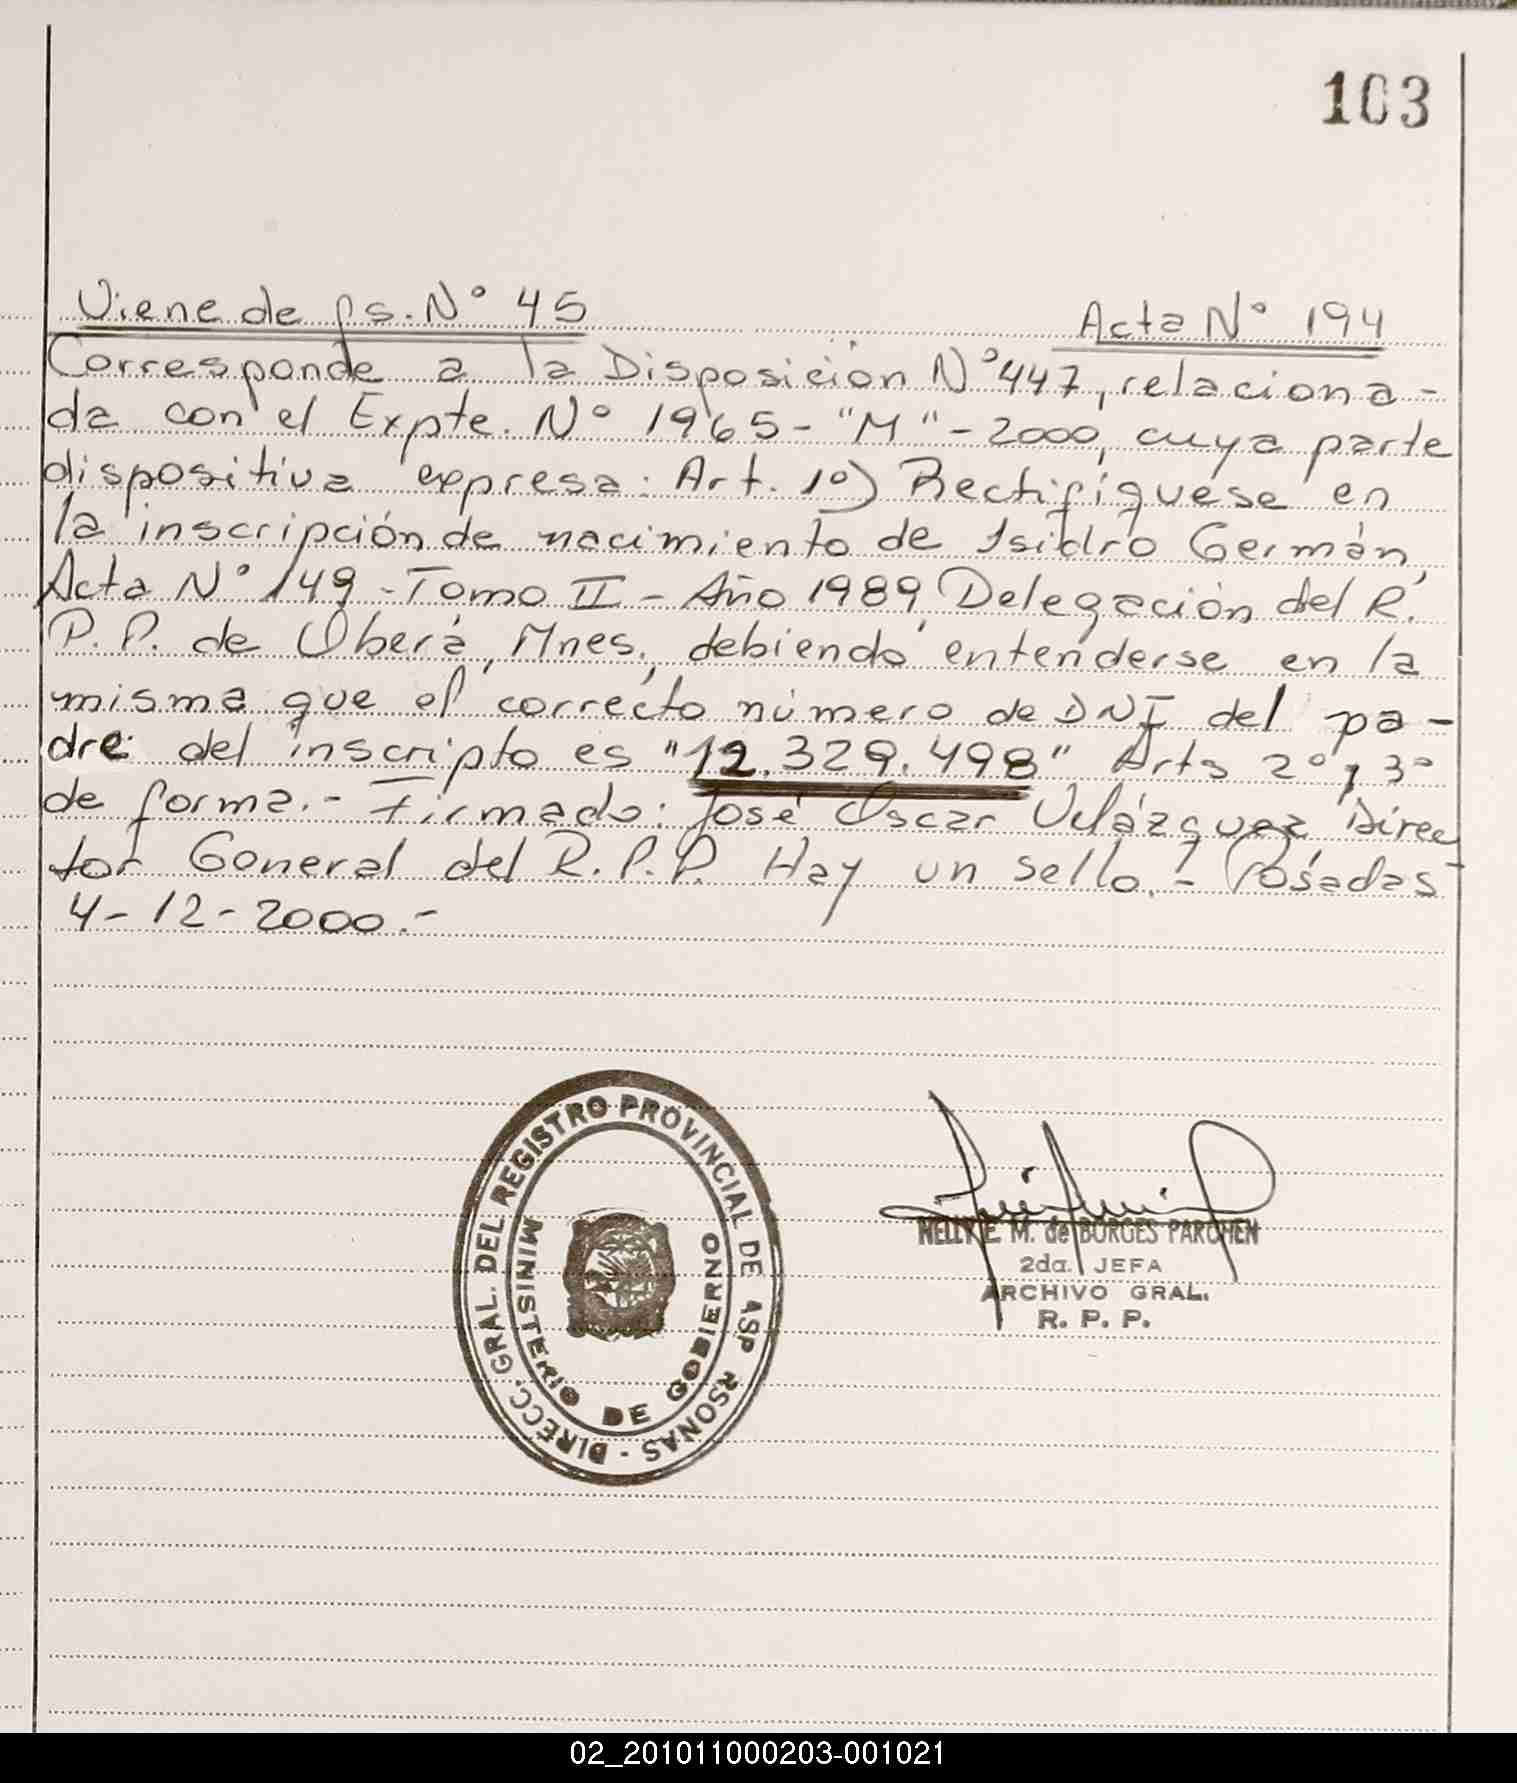 103
Viene de fs. N° 45
Acta N° 194
Corresponde a la Disposición N° 447, relaciona-
da con el Expte. N° 1965-"M"-2000, cuya parte
dispositiva expresa: Art. 1º) Rectifíquese en
la inscripción de nacimiento de Isidro Germán,
Acta N° 149 - Tomo II - Año 1989, Delegación del R.
P.P. de Oberá, Mnes., debiendo entenderse en la
misma que el correcto número de DNI del pa-
dre del inscripto es "12.329.498" Arts 2° y 3°
de forma.- Firmado: José Oscar Velázquez Direc
tor General del R.P.P. Hay un sello.- Posadas
4-12-2000.-
DIRECC. GRAL. DEL REGISTRO PROVINCIAL DE ASP RSONAS -
MINISTERIO DE GOBIERNO
NELLY E. M. de BORGES PARCHEN
2da. JEFA
ARCHIVO GRAL.
R. P. P.
02_201011000203-001021